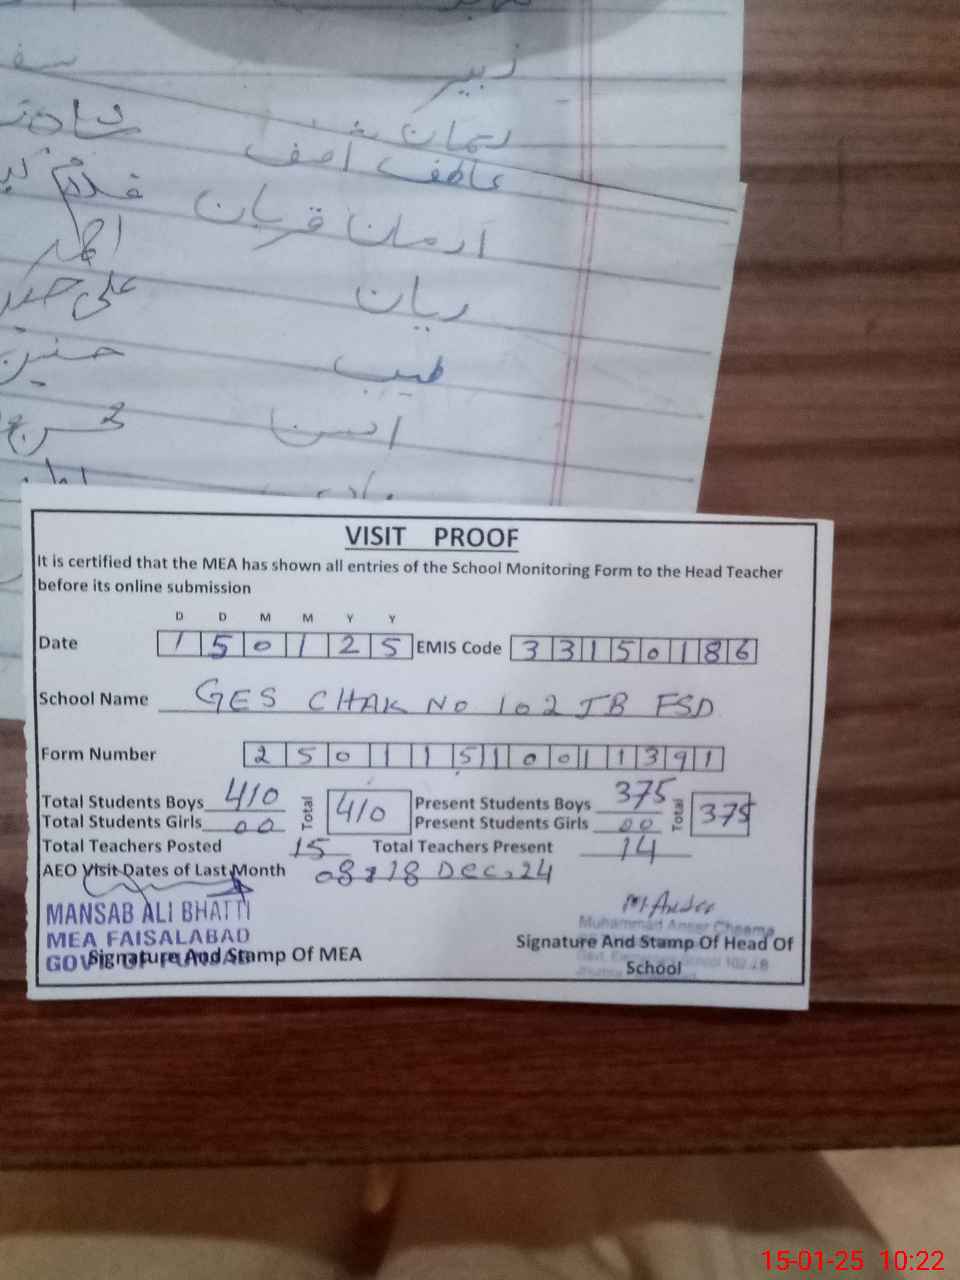 زبیر
عاطف آصف
ارمان قربان غلام
احمد
ریان علی
طیب حسنین
VISIT PROOF
It is certified that the MEA has shown all entries of the School Monitoring Form to the Head Teacher
before its online submission
D D M M Y Y
Date 150125 EMIS Code 33150186
School Name GES CHAK No 102 JB FSD
Form Number 25011510011391
Total Students Boys 410 Total 410 Present Students Boys 375 Total 375
Total Students Girls 00 Present Students Girls 00
Total Teachers Posted 15 Total Teachers Present 14
AEO Visit Dates of Last Month 08 & 18 Dec, 24
MANSAB ALI BHATTI
MEA FAISALABAD
GOVT. OF PUNJAB
Signature And Stamp Of MEA
Muhammad Anser Cheema
Signature And Stamp Of Head Of
School
15-01-25 10:22